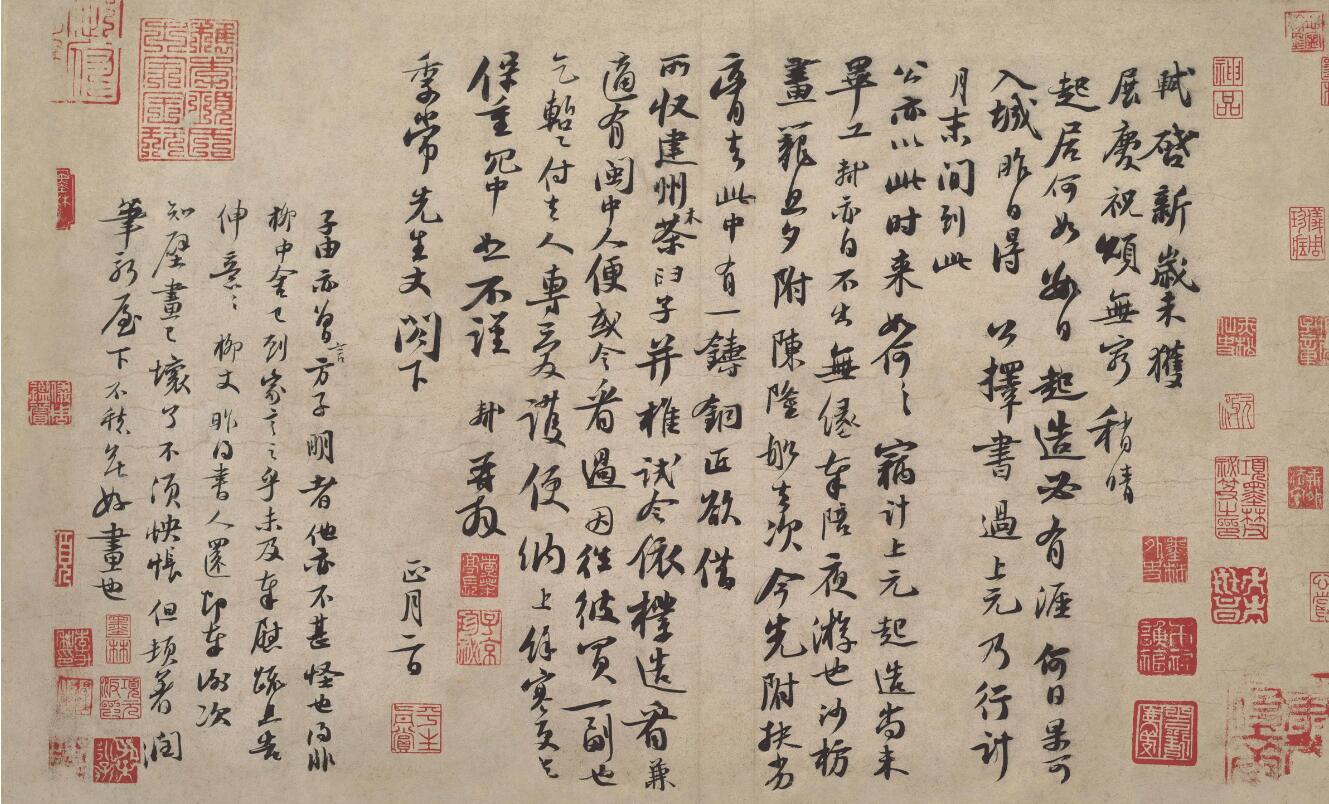 軾啓新歲未獲
展慶祝頌無窮稍晴
起居何如數日起造必有涯何日果可
入城昨日得公擇書過上元乃行計
月末間到此
公亦以此時來如何々竊計上元起造尚未
畢工軾亦自不出無緣奉陪夜游也沙枋
畫籠旦夕附陳隆船去次今先附扶劣
膏去此中有一鑄銅匠欲借
所收建州木茶臼子并椎試令依樣造看兼
適有閩中人便或令看過因往彼買一副也
乞暫々付去人專愛護便納上餘寒更乞
保重冗中恕不謹軾再拜
季常先生丈閣下
正月二日
子由亦曾言方子明者他亦不甚怪也得非
柳中舍已到家言之乎未及奉慰疏且告
伸意々柳丈昨得書人還即奉謝次
知壁畫已壞了不須怏悵但頓著潤
筆新屋下不愁無好畫也
神品
子京珍秘
平生真賞
墨林